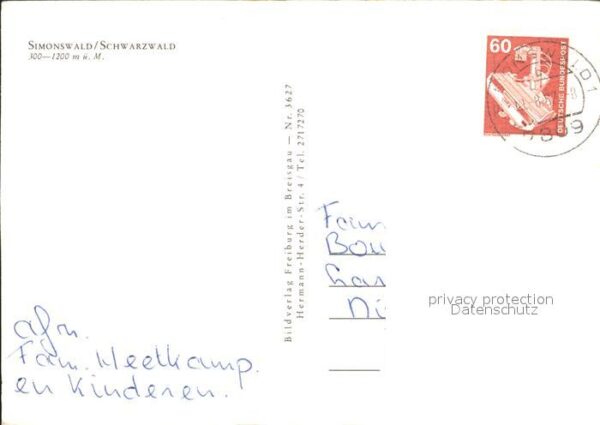 SIMONSWALD/SCHWARZWALD
300—1200 m ü. M.
60
DEUTSCHE BUNDESPOST
Bildverlag Freiburg im Breisgau — Nr. 3627
Hermann-Herder-Str. 4 / Tel. 2717270
Fam
Bou
privacy protection
Datenschutz
afn.
Fam. Meetkamp.
en Kinderen.